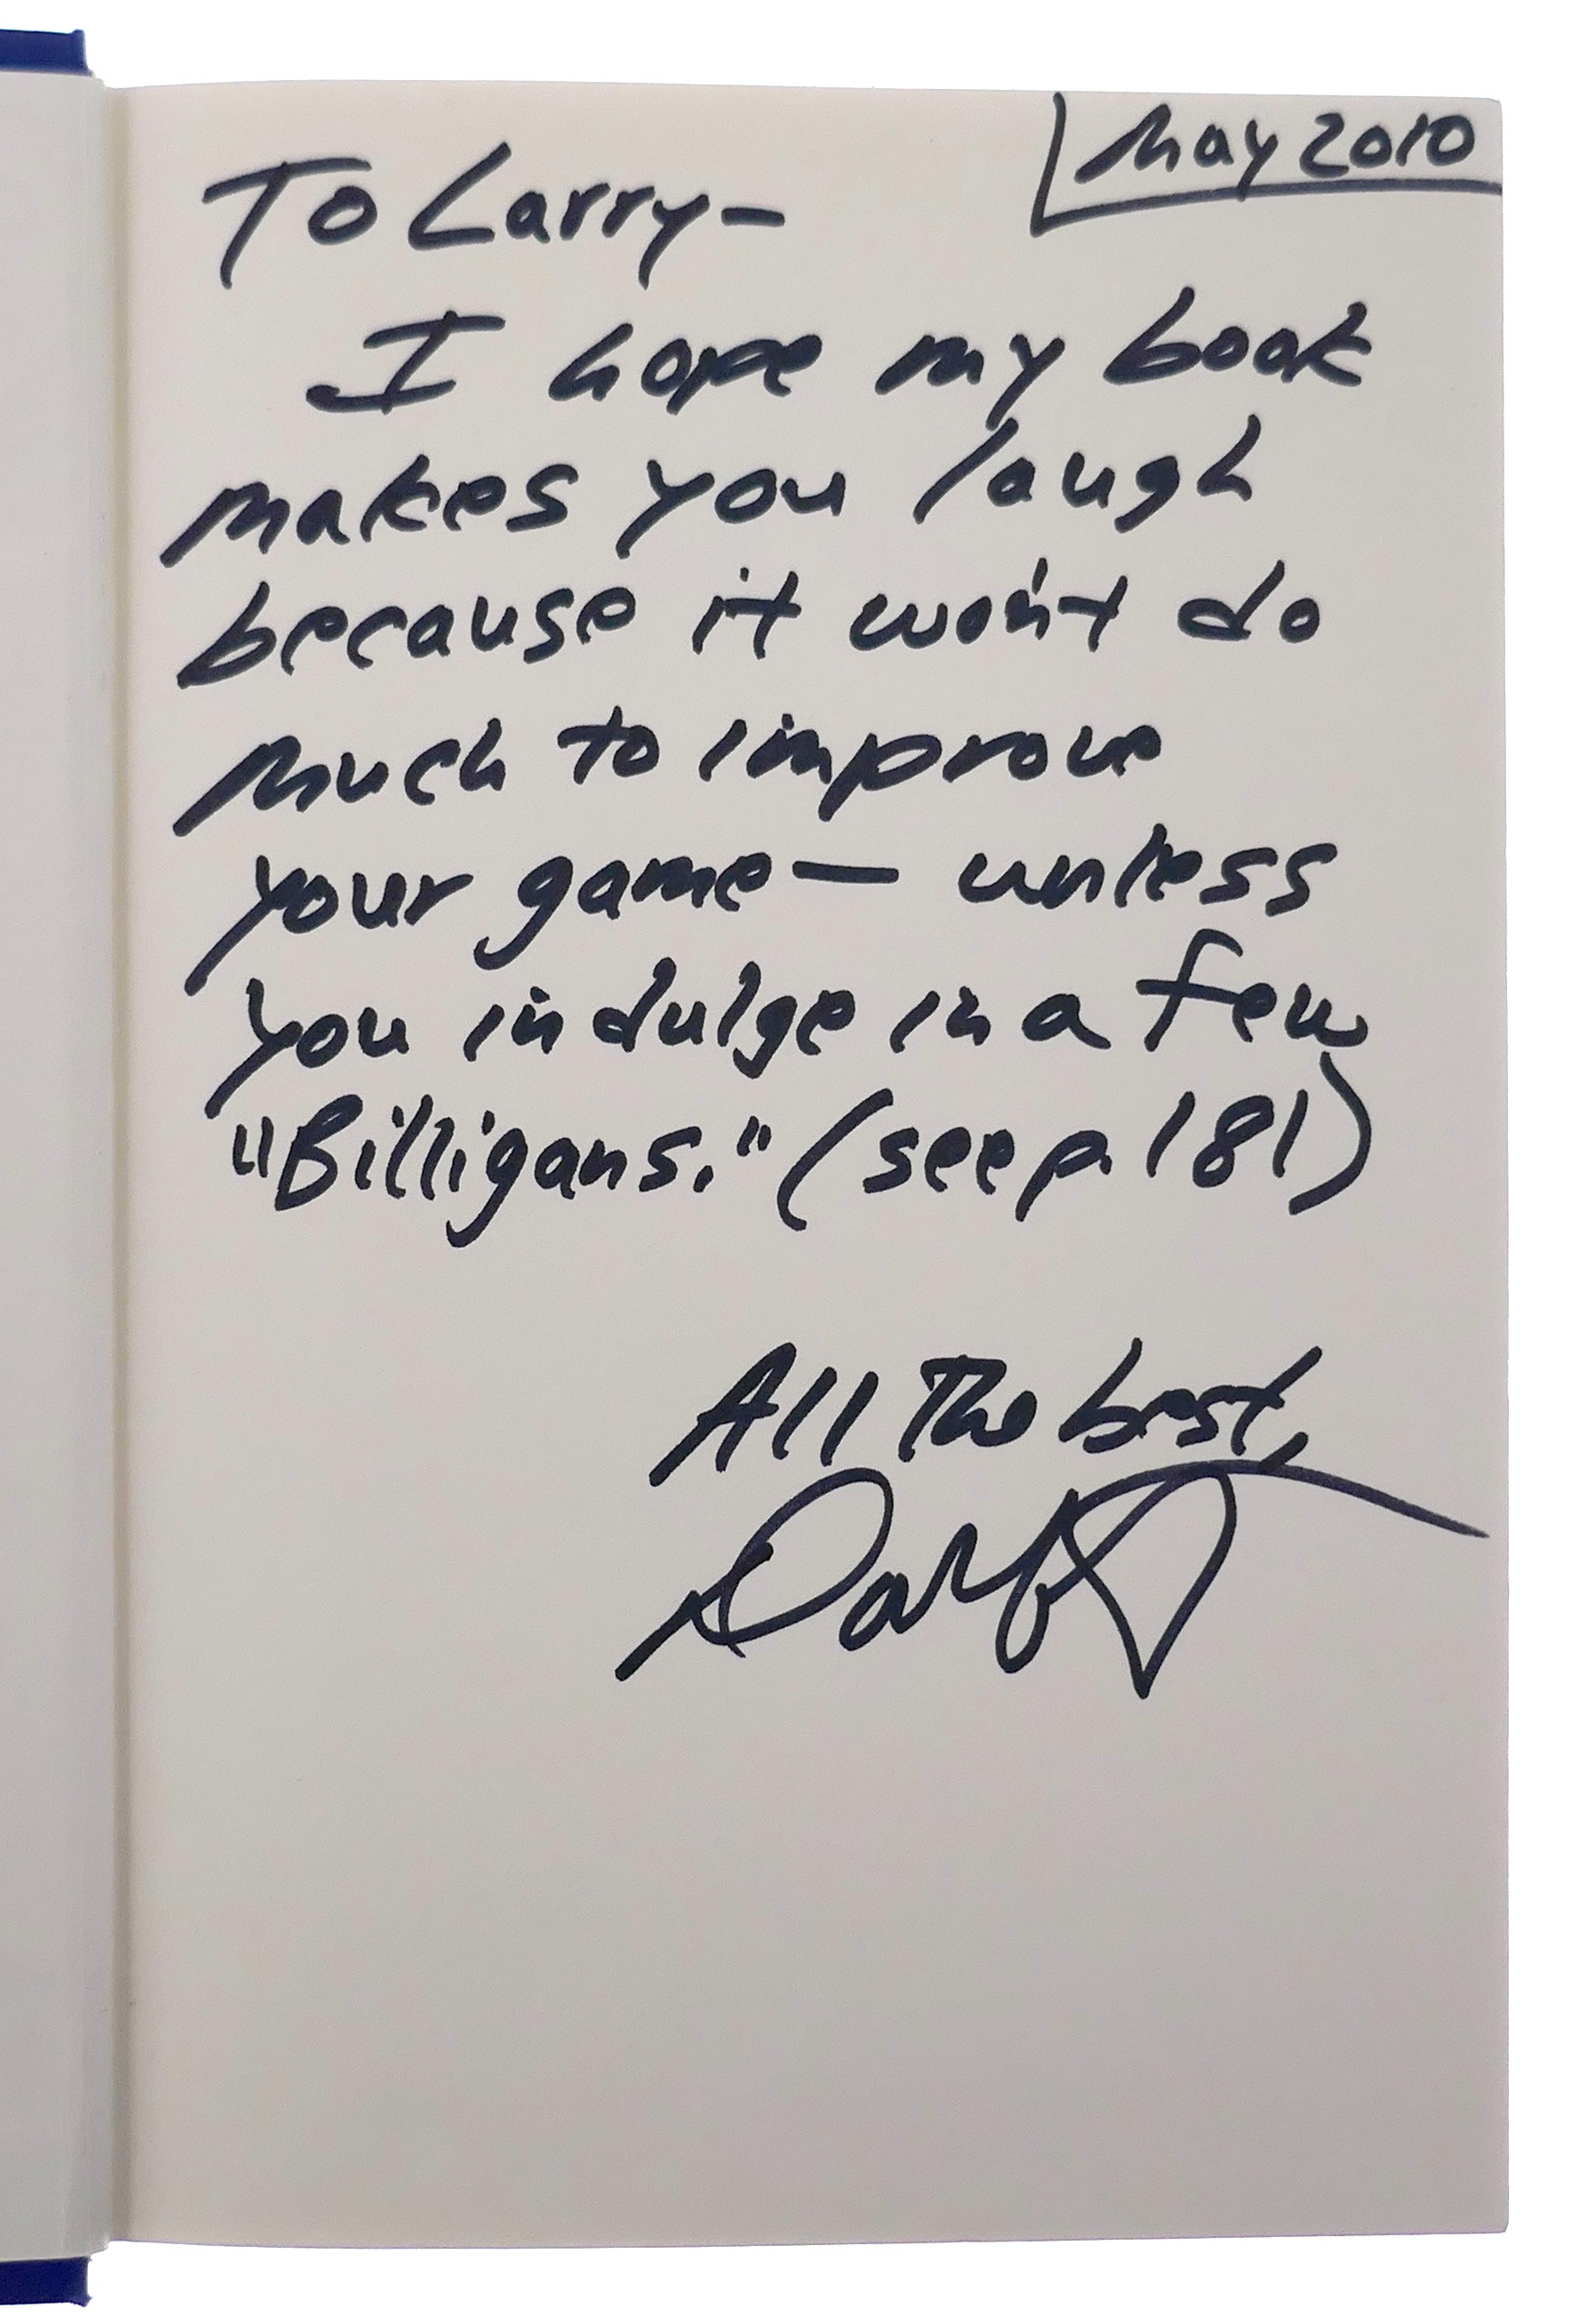 May 2010
To Larry—
I hope my book
makes you laugh
because it won't do
much to improve
your game— unless
you indulge in a few
"Billigans." (see p. 181)
All The best,